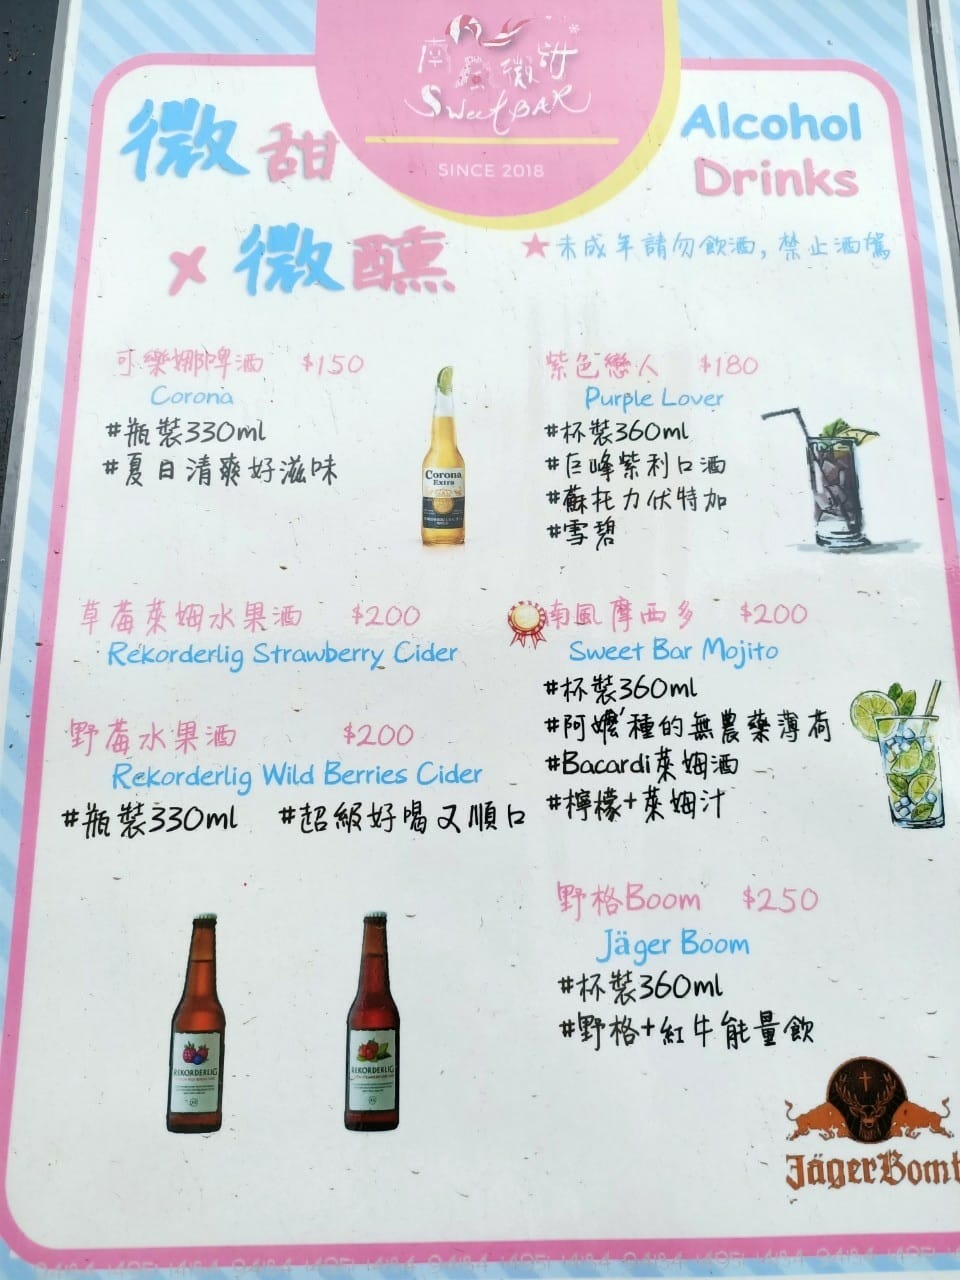 南風微甜
Sweet BAR
SINCE 2018
微甜
×微醺
Alcohol
Drinks
★未成年請勿飲酒,禁止酒駕
可樂娜啤酒 $150
Corona
#瓶裝330ml
#夏日清爽好滋味
Corona
Extra
草莓萊姆水果酒 $200
Rekorderlig Strawberry Cider
野莓水果酒 $200
Rekorderlig Wild Berries Cider
#瓶裝330ml #超級好喝又順口
REKORDERLIG
REKORDERLIG
紫色戀人 $180
Purple Lover
#杯裝360ml
#巨峰紫利口酒
#蘇托力伏特加
#雪碧
南風摩西多 $200
Sweet Bar Mojito
#杯裝360ml
#阿嬤種的無農藥薄荷
#Bacardi萊姆酒
#檸檬+萊姆汁
野格Boom $250
Jäger Boom
#杯裝360ml
#野格+紅牛能量飲
JägerBomb